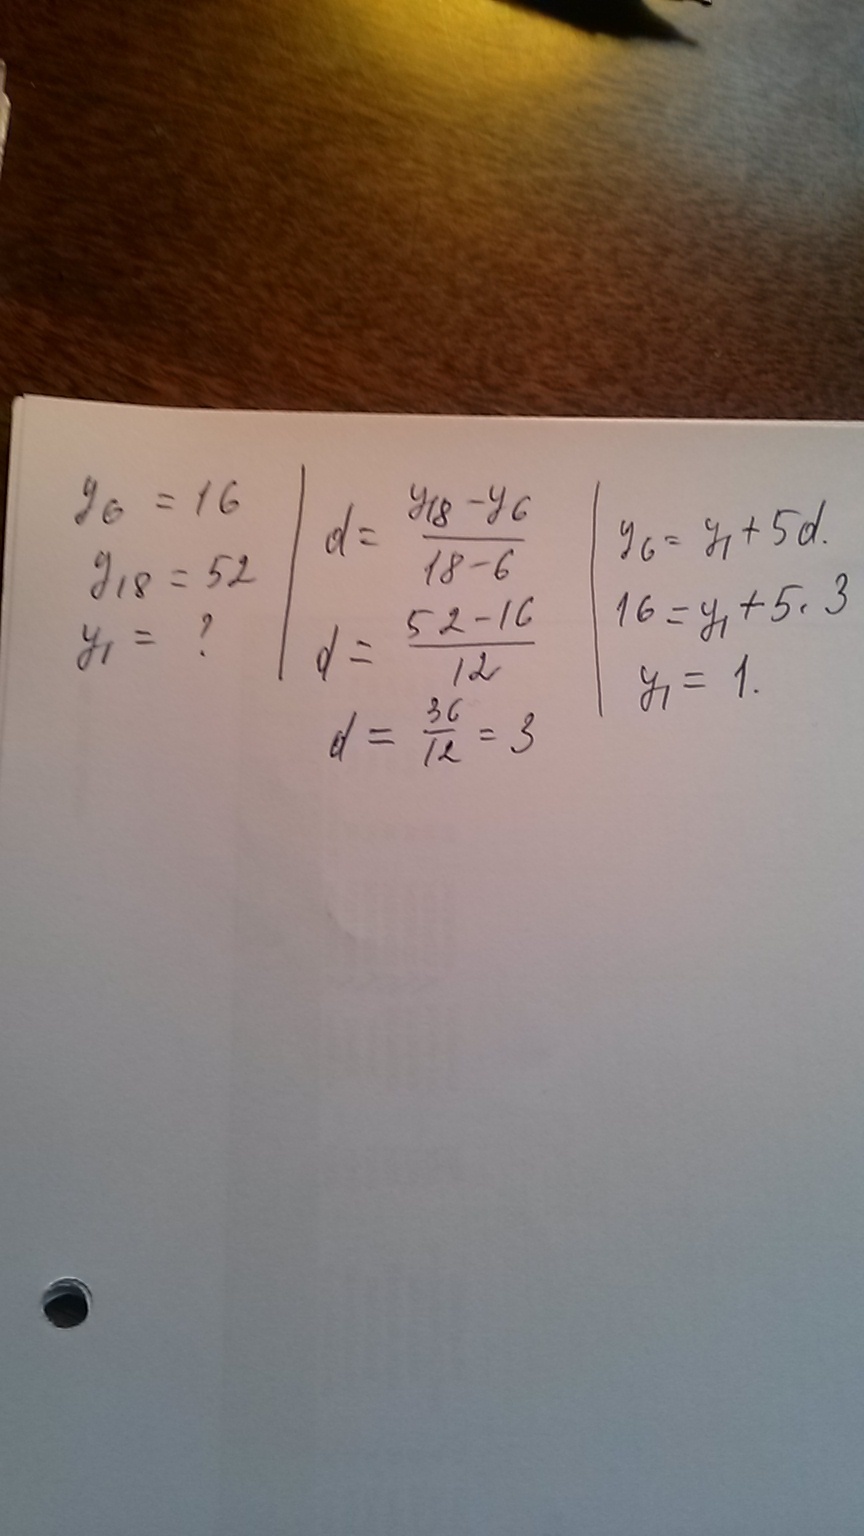 y₆ = 16
y₁₈ = 52
y₁ = ?
d = (y₁₈ - y₆)/(18 - 6)
d = (52 - 16)/12
d = 36/12 = 3
y₆ = y₁ + 5d.
16 = y₁ + 5 · 3
y₁ = 1.